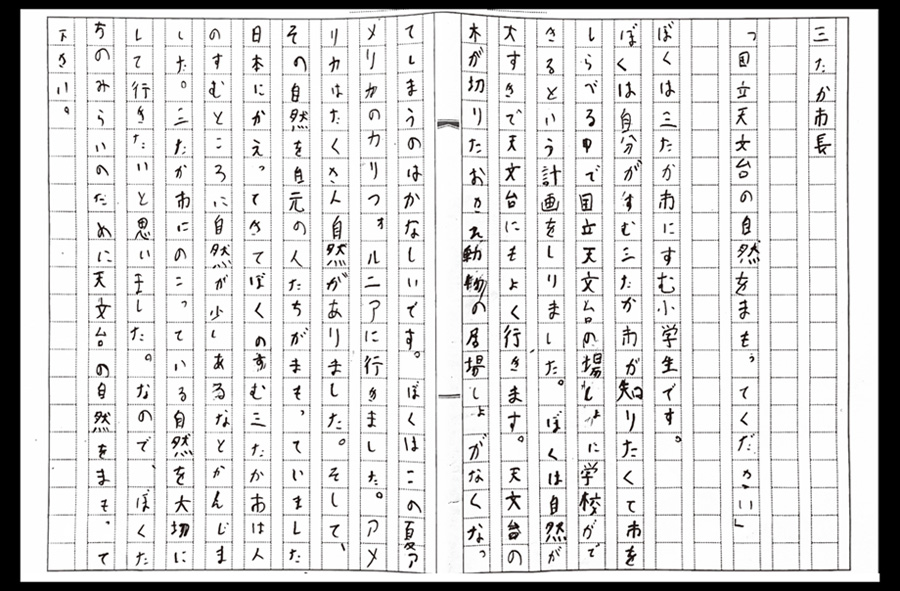 三たか市長
「国立天文台の自然をまもってください」
ぼくは三たか市にすむ小学生です。
ぼくは自分がすむ三たか市が知りたくて市を
しらべる中で国立天文台の場しょに学校がで
きるという計画をしりました。ぼくは自然が
大すきで天文台にもよく行きます。天文台の
木が切りたおされ動物の居場しょがなくなっ
てしまうのはかなしいです。ぼくはこの夏ア
メリカのカリフォルニアに行きました。アメ
リカはたくさん自然がありました。そして、
その自然を自元の人たちがまもっていました
日本にかえってきてぼくのすむ三たか市は人
のすむところに自然が少しあるなとかんじま
した。三たか市にのこっている自然を大切に
して行きたいと思いました。なので、ぼくた
ちのみらいのために天文台の自然をまもって
下さい。